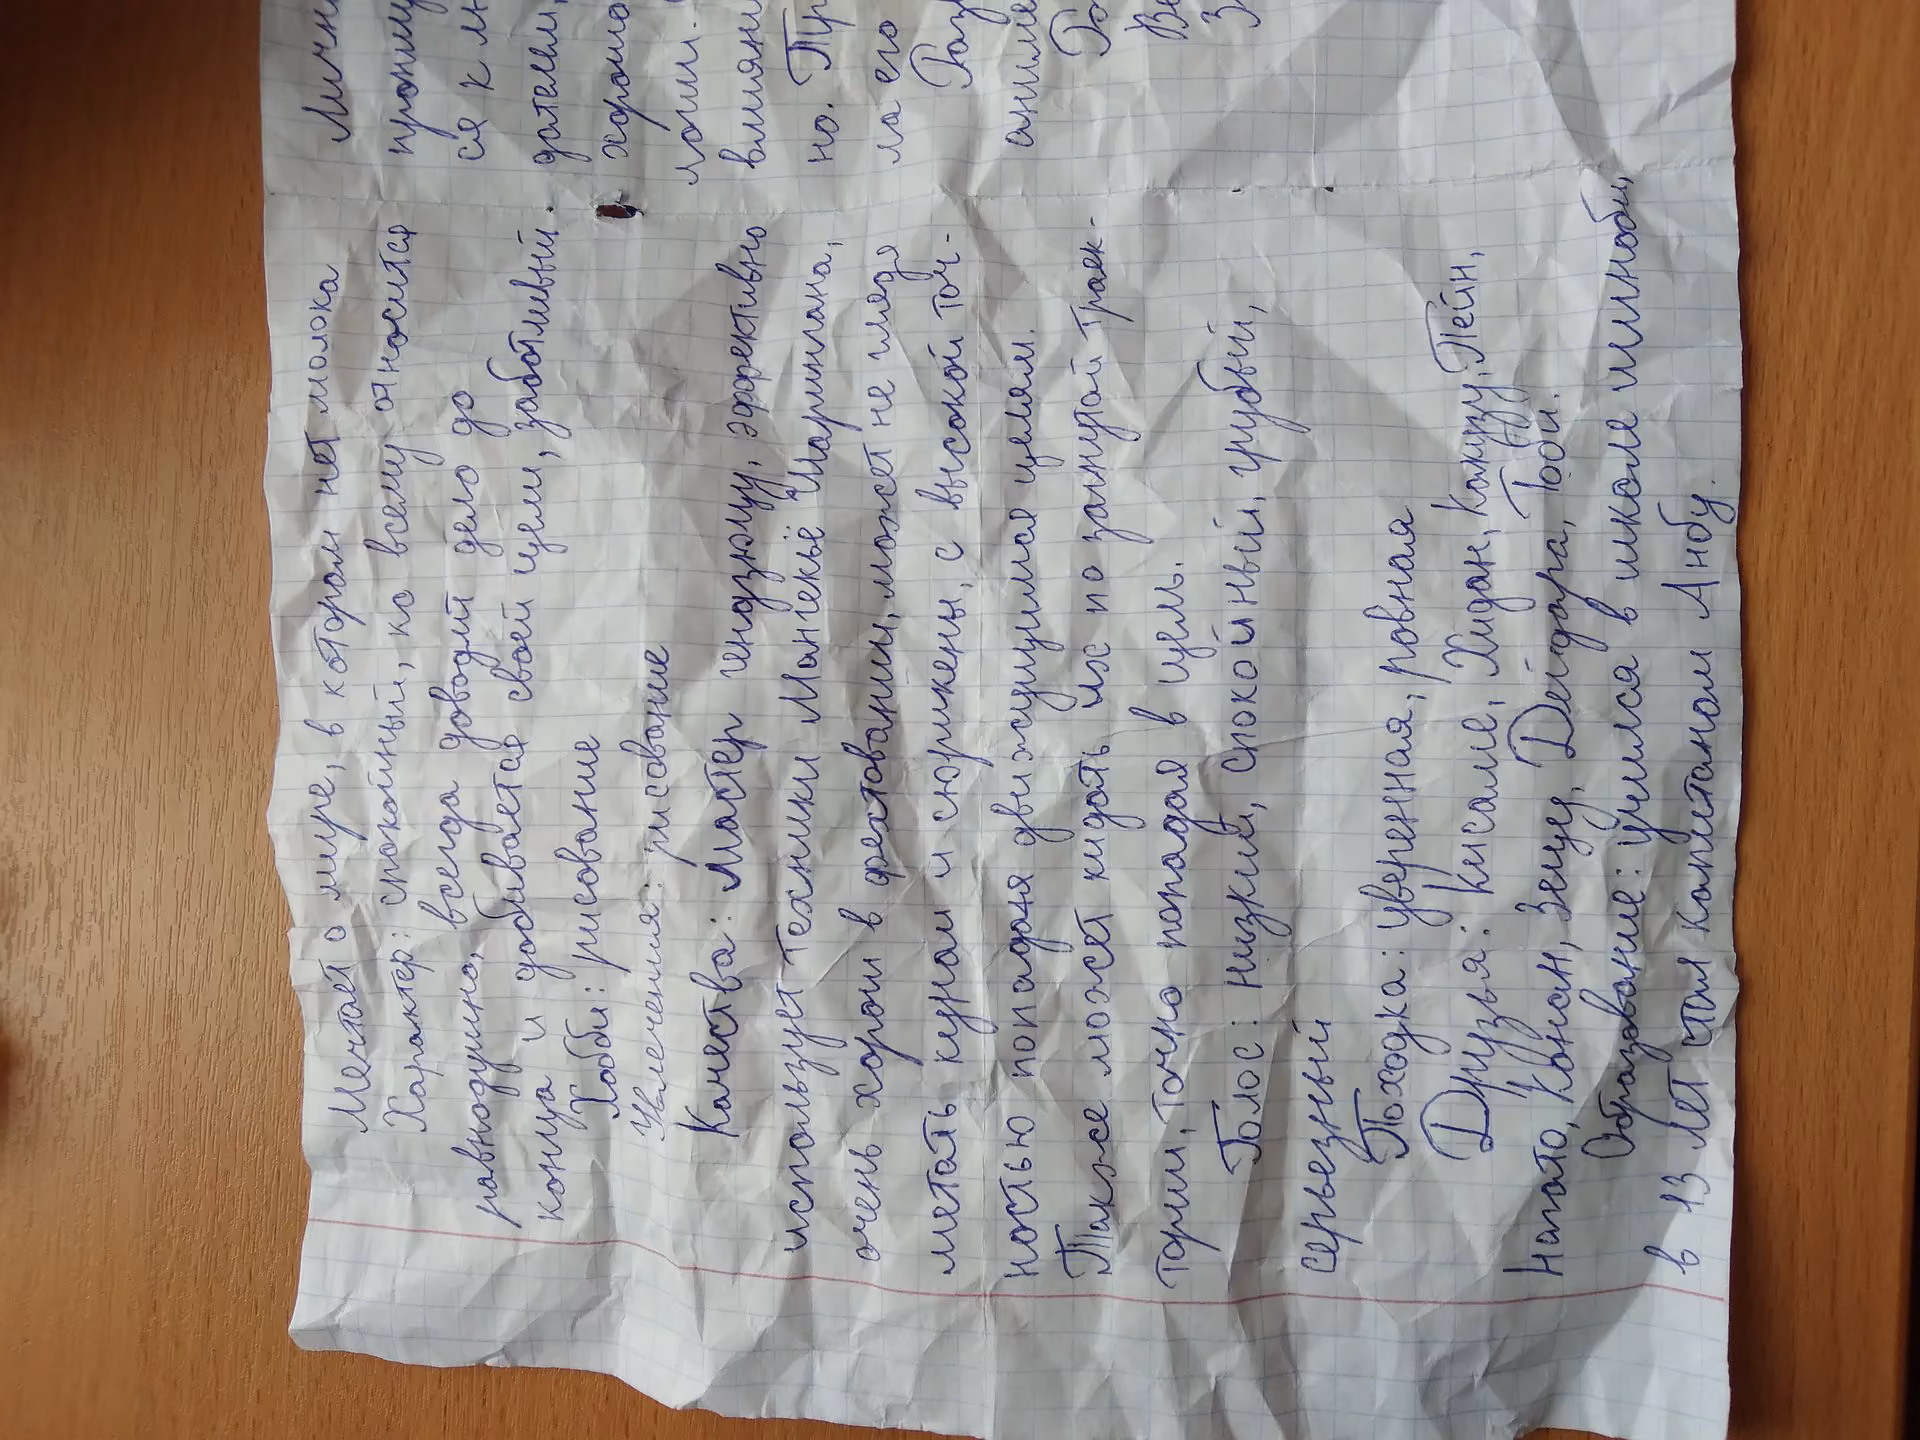 Мечтает о мире, в котором нет молока
Характер: спокойный, ко всему относится
равнодушно, всегда доводит дело до
конца и добивается своей цели, заботливый.
Хобби: рисование
Увлечения: рисование
Качества: Мастер гендзюцу, эффективно
использует техники Мангекьё Шарингана,
очень хорош в фехтовании, может не глядя
метать кунаи и сюрикены, с высокой точ-
ностью попадая движущимся целям.
Также может кидать их по загнутой траек-
тории, точно попадая в цель.
Голос: низкий, спокойный, грубый,
серьезный
Походка: уверенная, ровная
Друзья: Кисаме, Хидан, Какузу, Пейн,
Нагато, Конан, Зецу, Дейдара, Тоби.
Образование: учился в школе шиноби,
в 13 лет стал капитаном Анбу.
Личн
прониц
ся к мн
дателем,
хорошо
лоши.
влияни
но. Пр
ла его
Разг
аниме